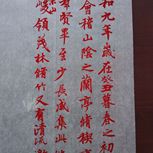 和九年歲在癸丑暮春之初
會稽山陰之蘭亭脩禊
羣賢畢至少長咸集此
峻領茂林脩竹又有清流激